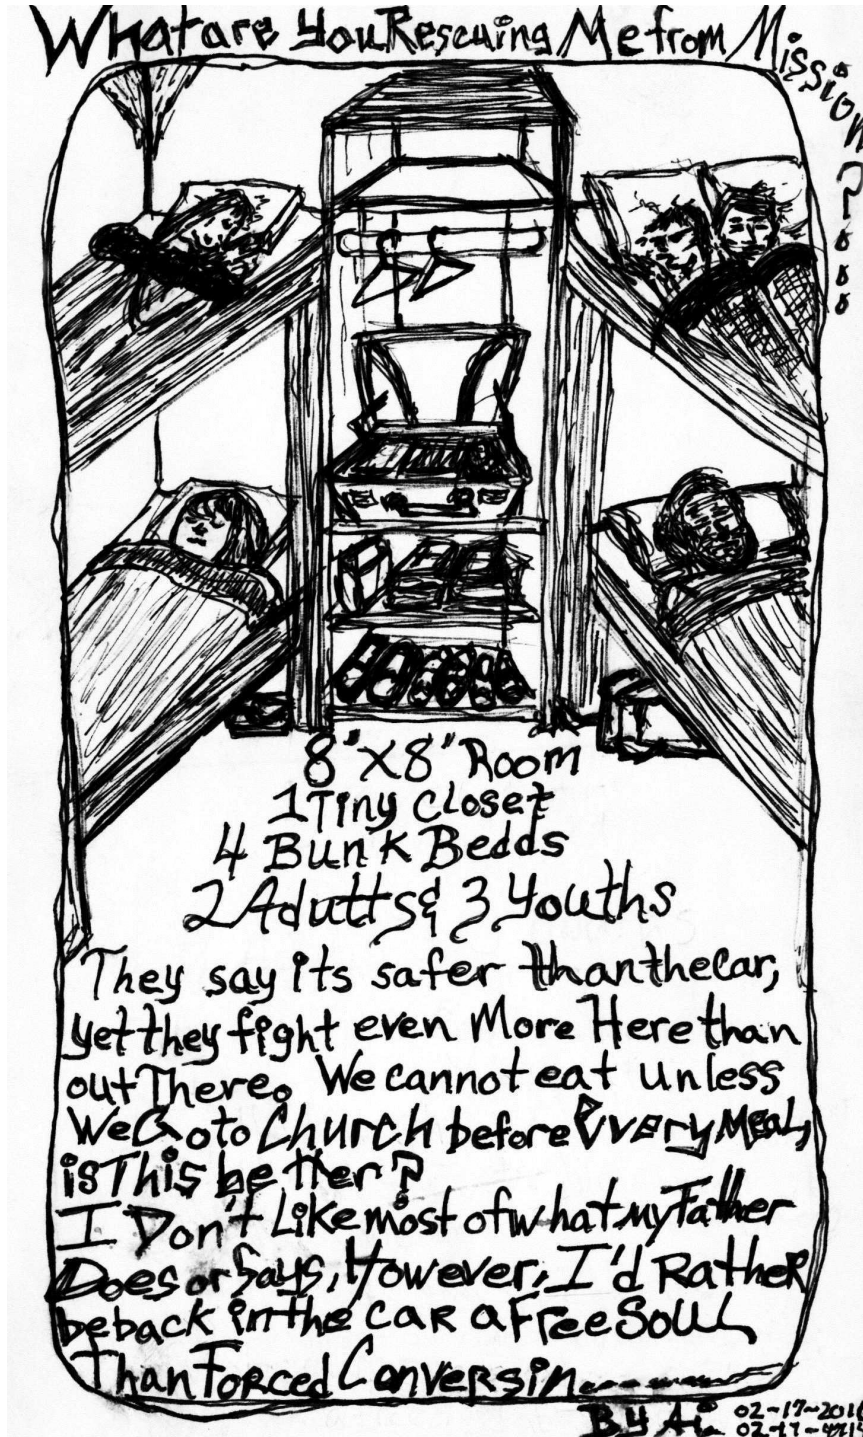 What are You Rescuing Me from Mission?...
8"x8" Room
1 Tiny closet
4 Bunk Bedds
2 Adutts & 3 Youths
They say its safer than the Car,
yet they fight even More Here than
out There. We cannot eat unless
We Go to Church before Every Meal,
is This better?
I Don't Like most of what my Father
Does or Says, However, I'd Rather
be back in the car a Free Soul
Than Forced Conversin...
By Ai 02-17-2016
02-17